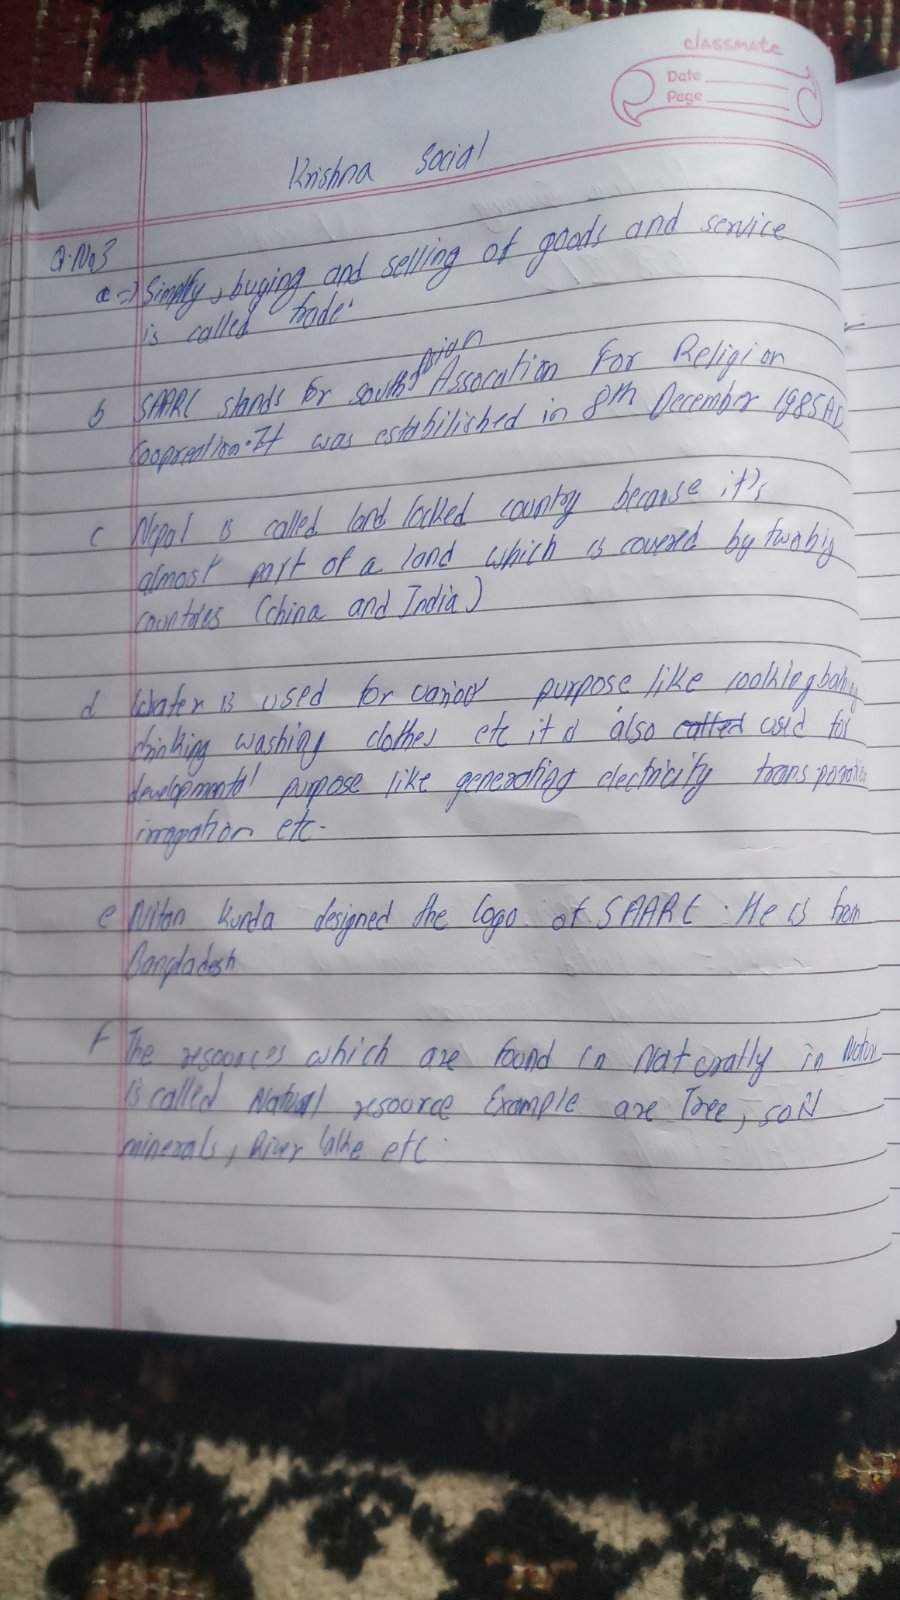 classmate
Date
Page
Krishna Social
Q.No3
a => Simply, buying and selling of goods and service
is called trade.
b SAARC stands for south Asian Assocation For Religion
Cooprection. It was estabilished in 8th December 1985AD
c Nepal is called land locked country because it's
almost part of a land which is covered by two big
countries (China and India)
d Water is used for various purpose like cooking
drinking washing clothes etc it also called used for
developmental purpose like generating electricity
etc.
e Nitan Kunda designed the logo of SAARC. He is from
Bangladesh
f The resources which are found in Naturally in
is called Natural resource Example are Tree, soil
minerals, River lake etc.